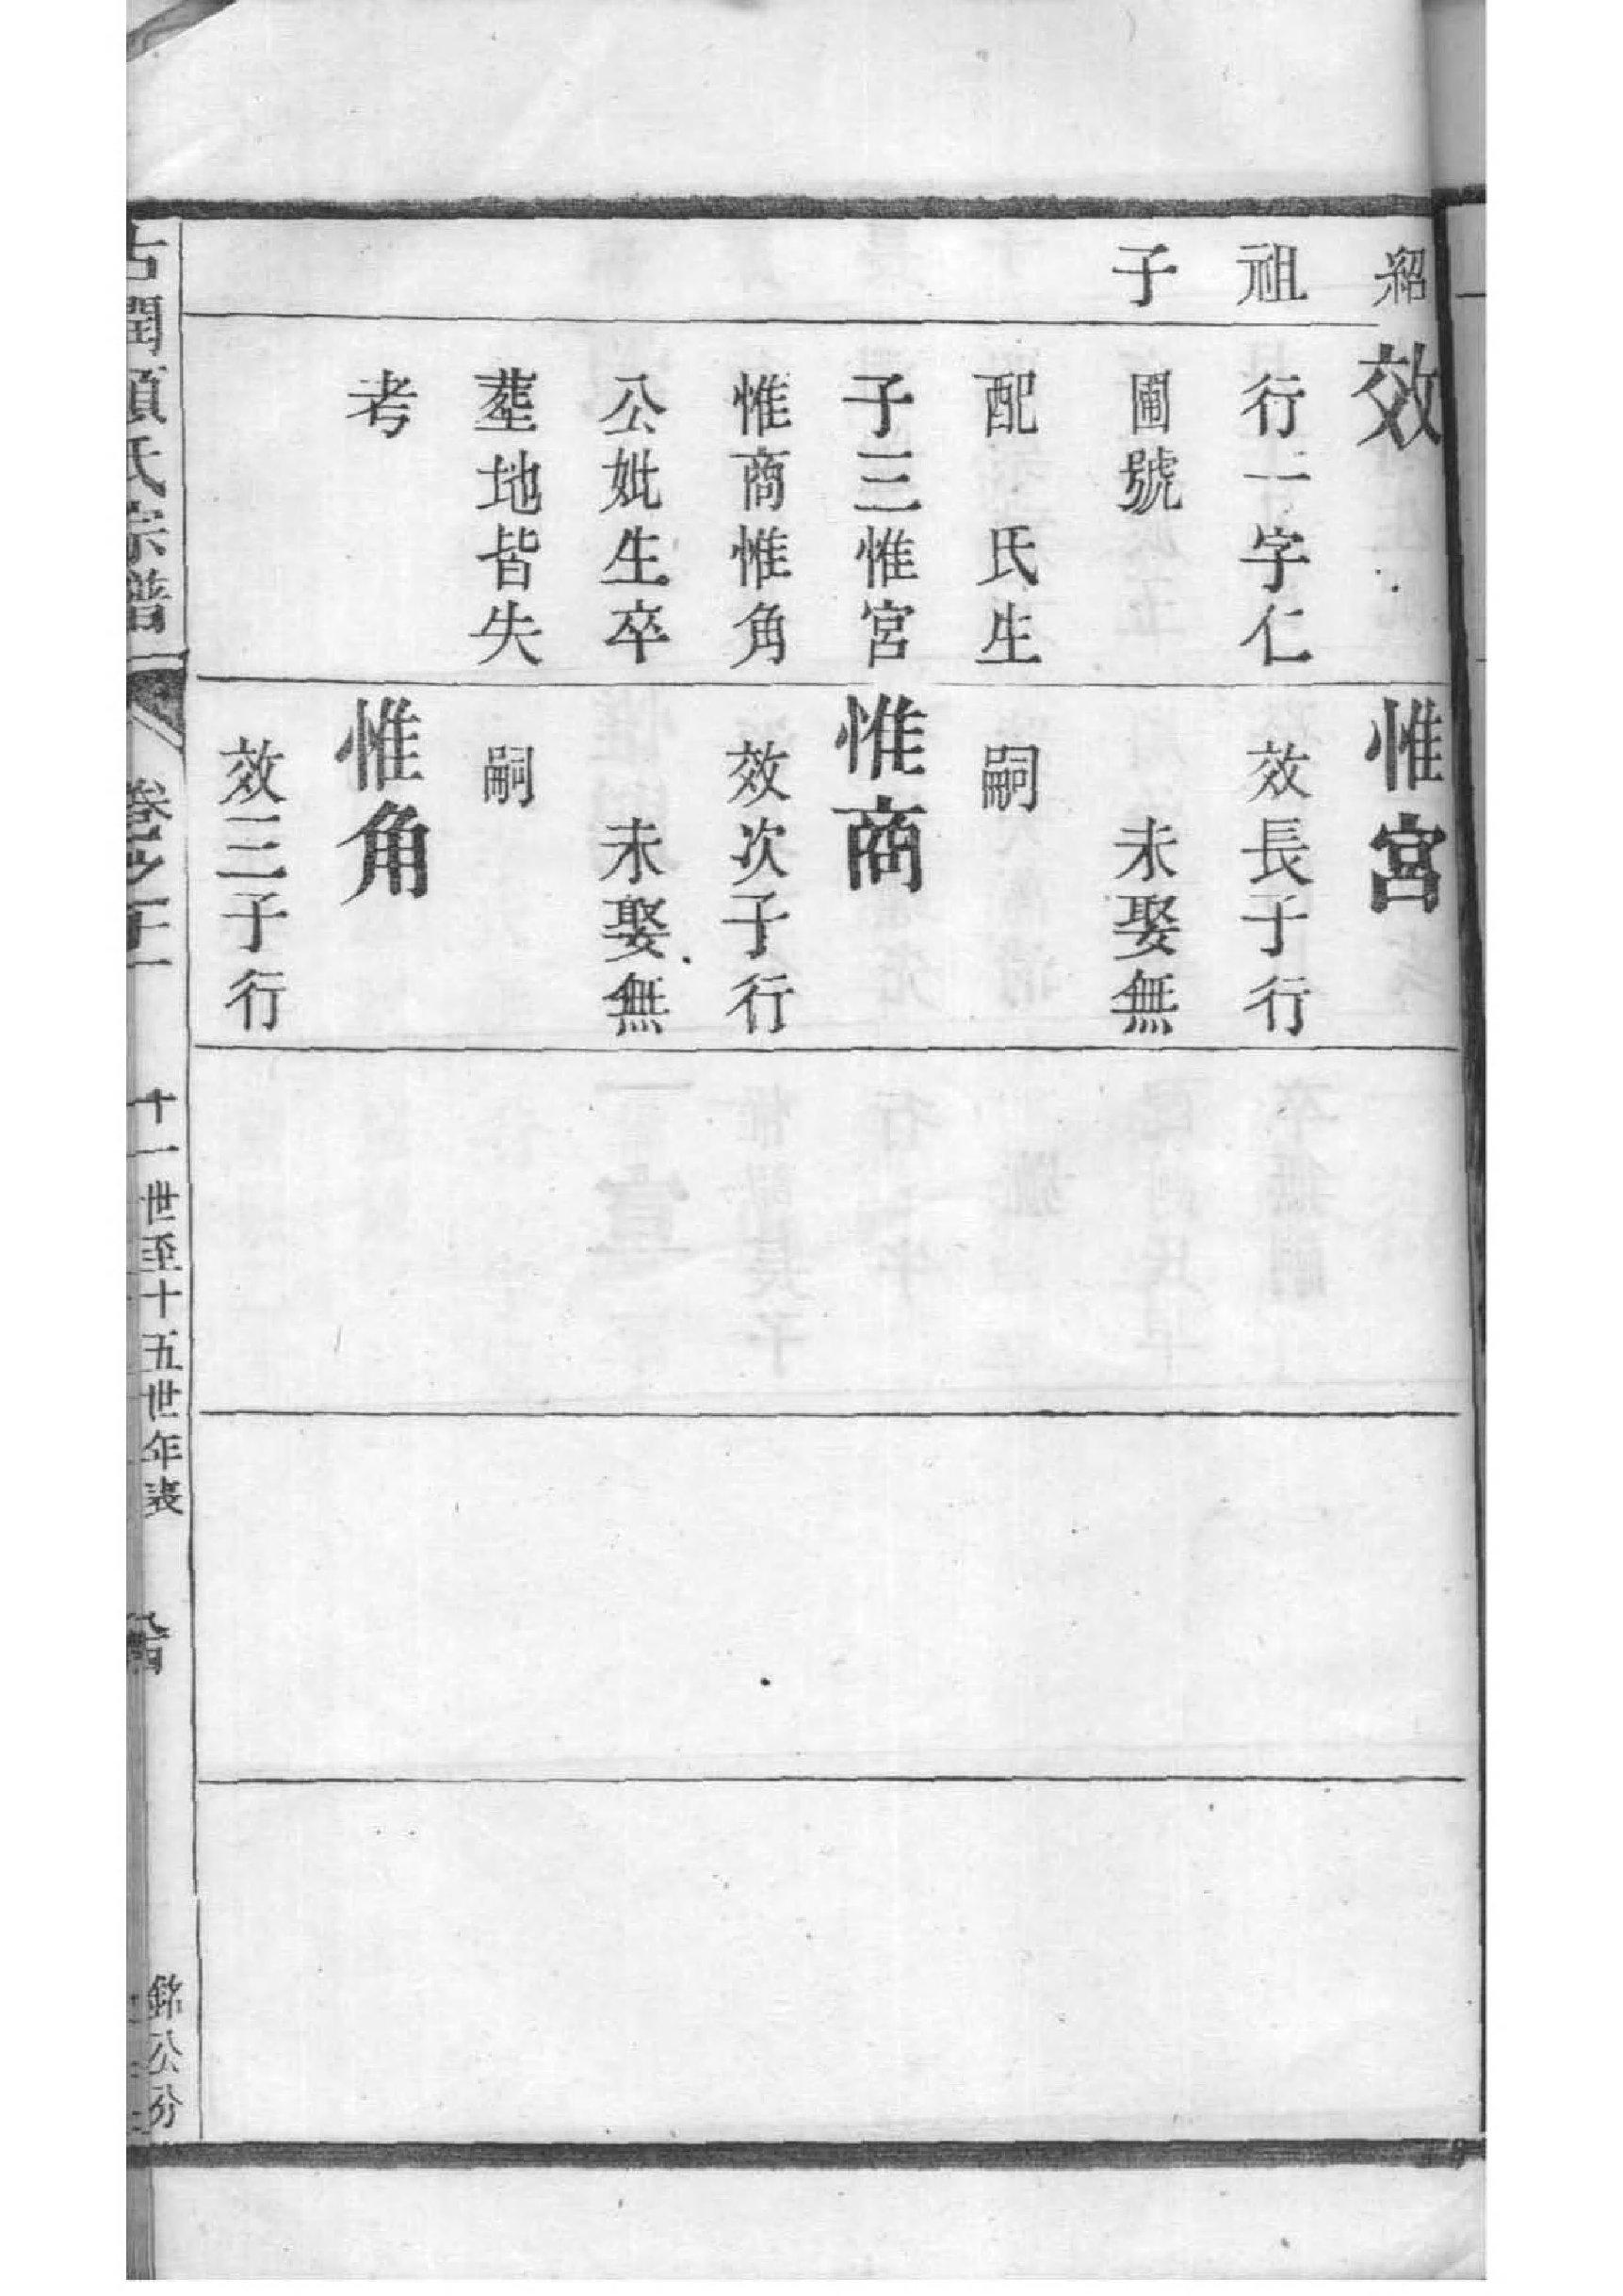 紹
祖
子
效
行一字仁
圃號
配 氏生
子三惟宮
惟商惟角
公妣生卒
塟地皆失
考
惟宮
效長子行
未娶無
嗣
惟商
效次子行
未娶無
嗣
惟角
效三子行
古潤 氏宗譜
卷之
十一世至十五世年表
銘公分